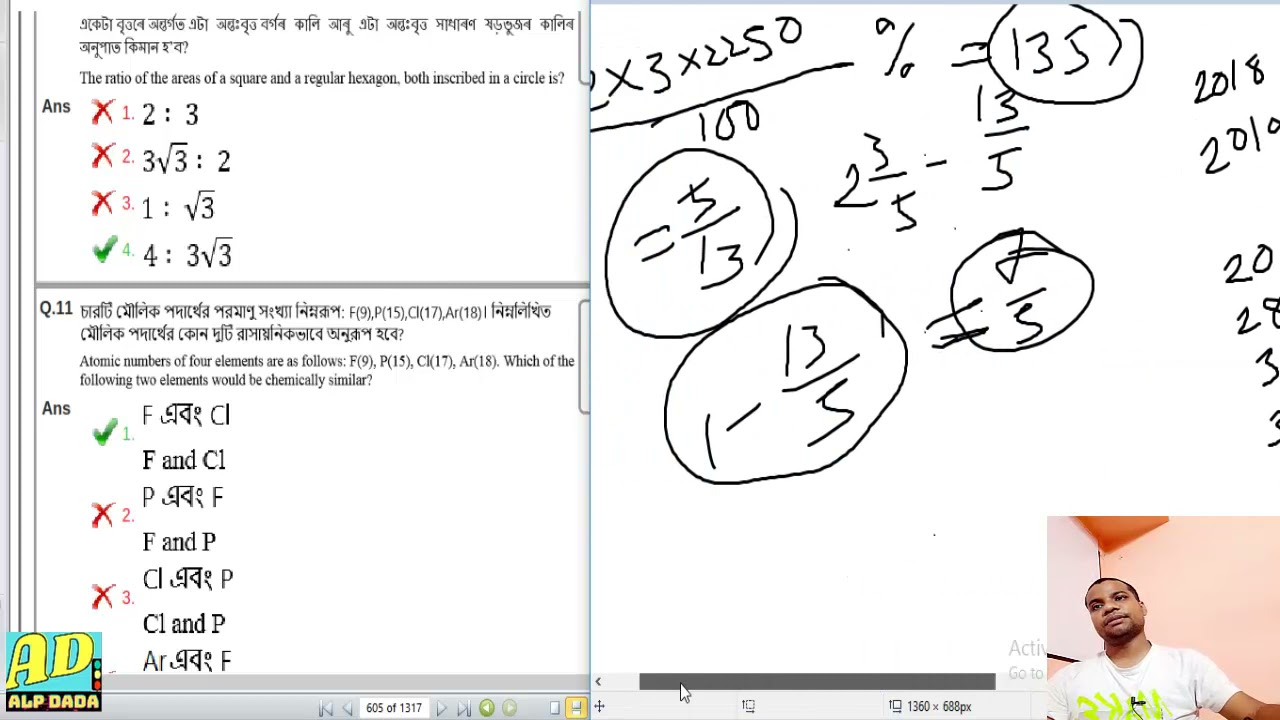 একেটা বৃত্তৰে অন্তৰ্গত এটা অন্তঃবৃত্ত বৰ্গৰ কালি আৰু এটা অন্তঃবৃত্ত সাধাৰণ ষড়ভুজৰ কালিৰ
অনুপাত কিমান হ'ব?
The ratio of the areas of a square and a regular hexagon, both inscribed in a circle is?
Ans
1. 2 : 3
2. 3√3 : 2
3. 1 : √3
4. 4 : 3√3
Q.11 চাৰটি মৌলিক পদাৰ্থেৰ পৰমাণু সংখ্যা নিম্নৰূপ: F(9),P(15),Cl(17),Ar(18)। নিম্নলিখিত
মৌলিক পদাৰ্থেৰ কোন দুটি ৰাসায়নিকভাবে অনুৰূপ হবে?
Atomic numbers of four elements are as follows: F(9), P(15), Cl(17), Ar(18). Which of the
following two elements would be chemically similar?
Ans
F এবং Cl
1.
F and Cl
P এবং F
2.
F and P
Cl এবং P
3.
Cl and P
Ar এবং F
AD
ALP DADA
605 of 1317
×3×2250 % = 135
100
2 3/5 - 13/5
= 5/13
1 - 13/5
2018
2019
20
28
3
3
Activ
Go to
1360 × 688px